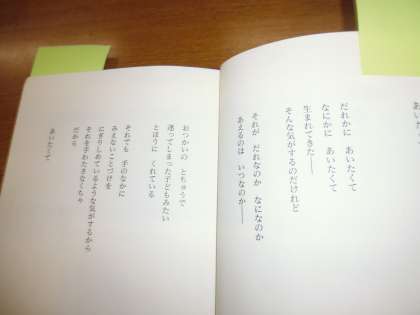 あいた
だれかに　あいたくて
なにかに　あいたくて
生まれてきた――
そんな気がするのだけれど
それが　だれなのか　なになのか
あえるのは　いつなのか――
おつかいの　とちゅうで
迷ってしまった子どもみたい
とほうに　くれている
それでも　手のなかに
みえないことづけを
にぎりしめているような気がするから
それを手わたさなくちゃ
だから
あいたくて